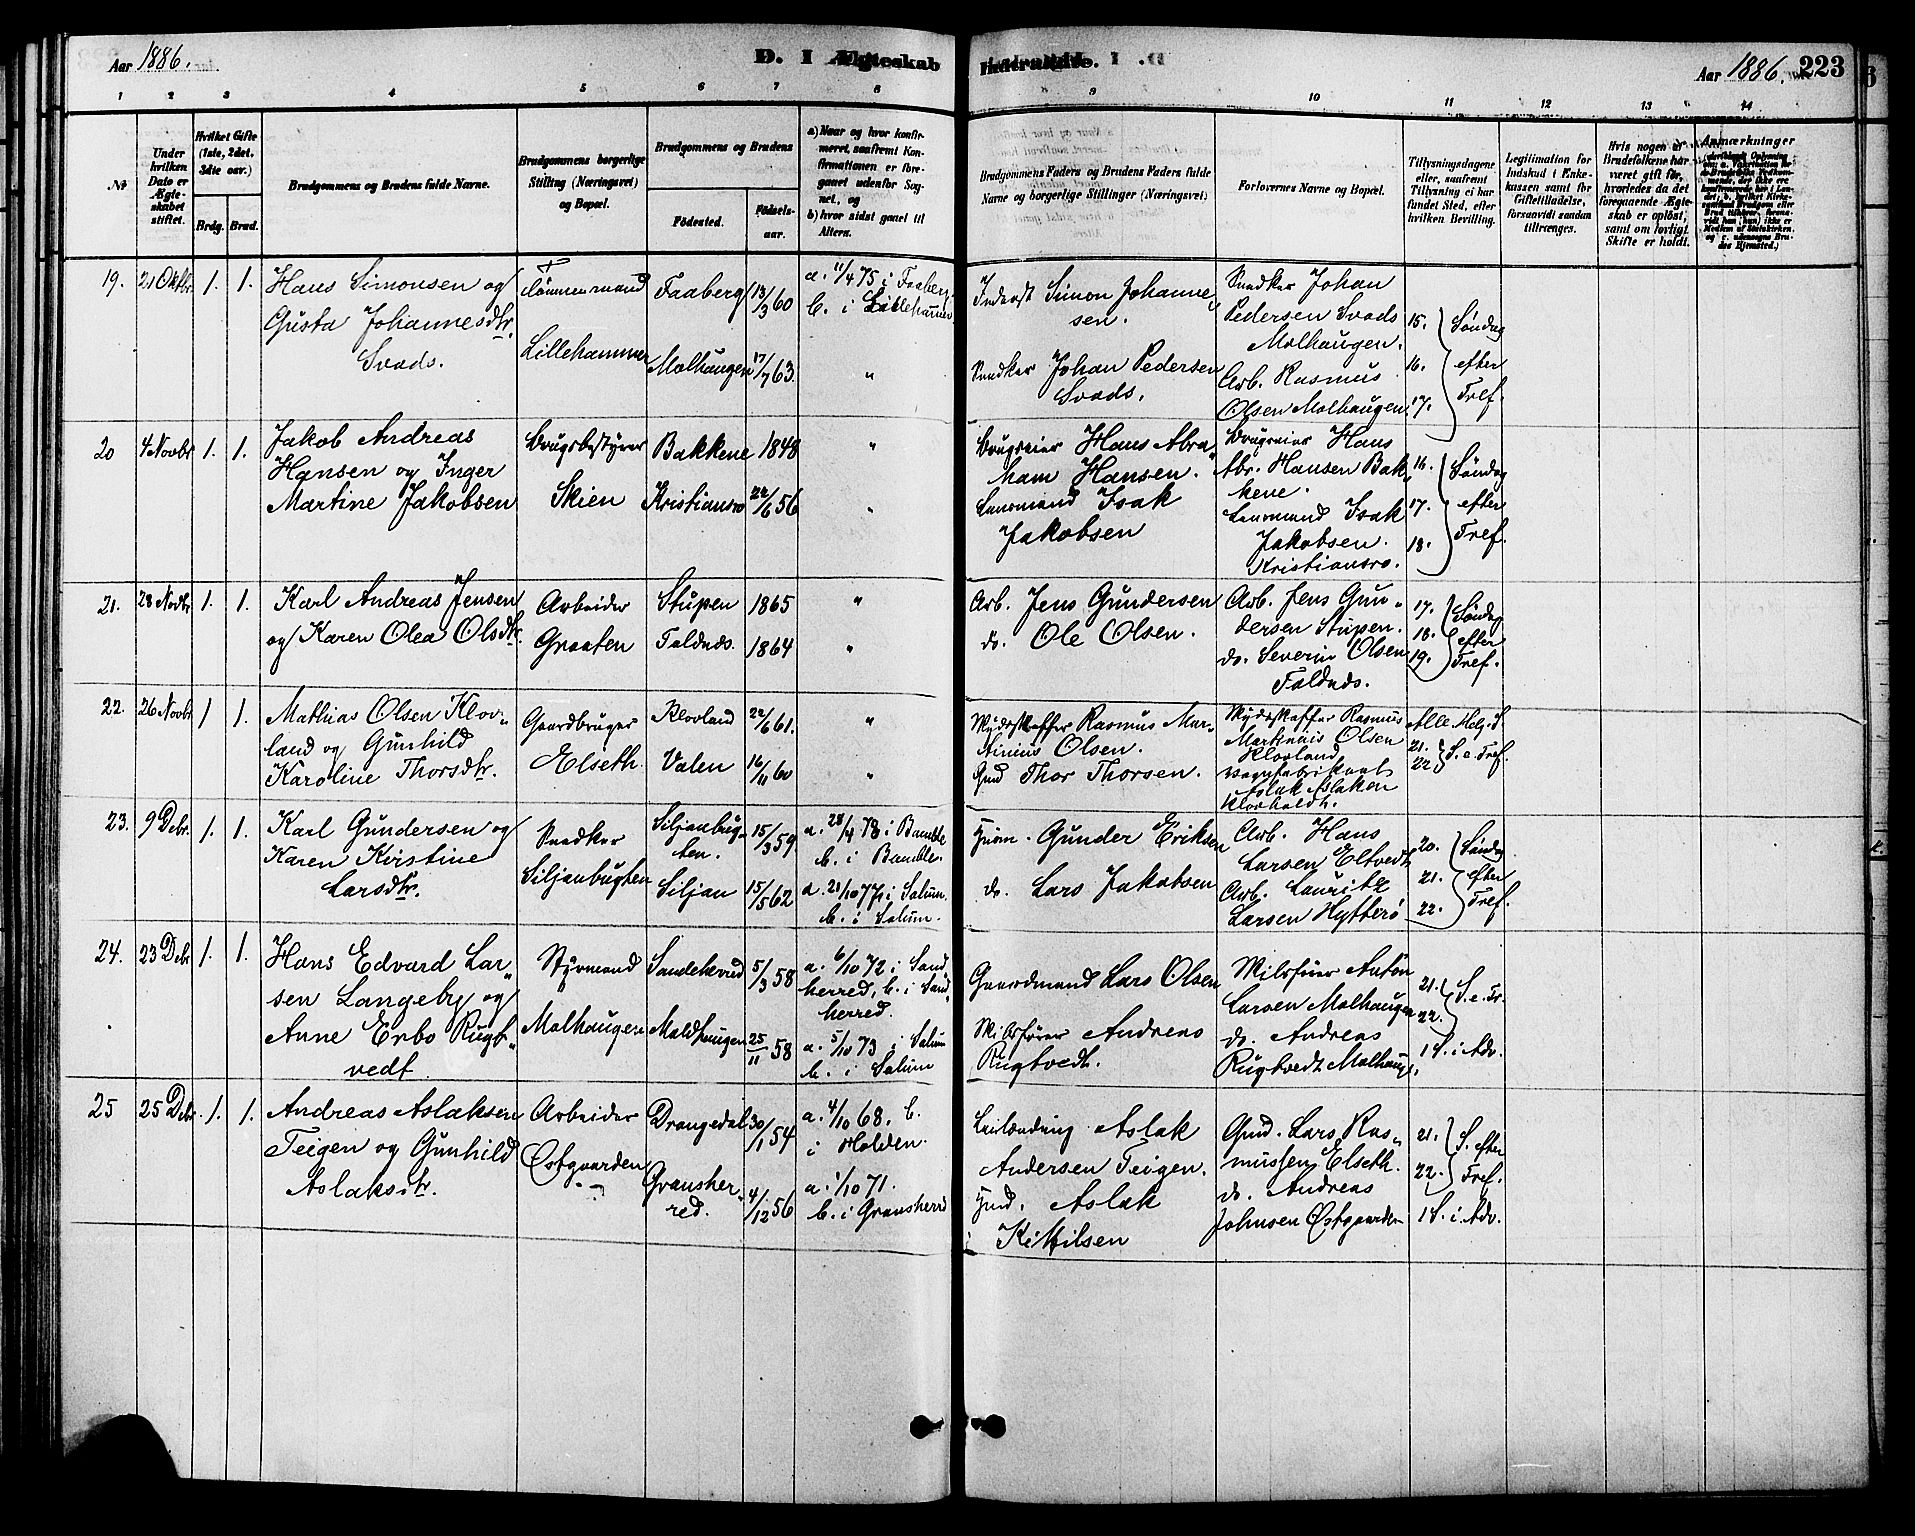 Aar 1886.
D. I Ægteskab Indtraadte.
Aar 1886. 223
1 2 3 4 5 6 7 8 9 10 11 12 13 14
No
Under hvilken Dato er Ægteskabet stiftet.
Hvilket Gifte (1ste, 2det, 3die osv.)
Brdg. Brud.
Brudgommens og Brudens fulde Navne.
Brudgommens borgerlige Stilling (Næringsvei) og Bopæl.
Brudgommens og Brudens
Födested. Födsels-aar.
a) Naar og hvor konfirmeret, saafremt Konfirmationen er foregaaet udenfor Sognet, og
b) hvor sidst gaaet til Alters.
Brudgommens Faders og Brudens Faders fulde Navne og borgerlige Stillinger (Næringsvei)
Forlovernes Navne og Bopæl.
Tillysningsdagene eller, saafremt Tillysning ei har fundet Sted, efter hvilken Bevilling.
Legitimation for Indskud i Enkekassen samt for Giftetilladelse, forsaavidt saadan tiltrænges.
Hvis nogen af Brudefolkene har været gift før, hvorledes da det foregaaende Ægteskab er oplöst, samt om lovligt Skifte er holdt.
Anmærkninger
19. 21 Oktbr. 1. 1.
Hans Simonsen og
Gusta Johannesdtr.
Svads.
Tömmermand
Lillehammer
Faaberg 13/3 60
Molhaugen 17/7 63.
a. 11/4 75 i Faaberg.
b. i Lillehammer
"
Inderst Simon Johanne,
sen.
Snedker Johan Pedersen
Svads.
Snedker Johan
Pedersen Svads
Molhaugen.
Arb. Rasmus
Olsen Molhaugen
15. 16. 17. Søndag efter Tref.
20 4 Novbr 1. 1.
Jakob Andreas
Hansen og Inger
Martine Jakobsen
Brugsbestyrer
Skien
Bakkene 1848
Kristiansro 22/6 56
"
"
Brugseier Hans Abra,
ham Hansen.
Lensmand Isak
Jakobsen
Brugseier Hans
Abr. Hansen Bak,
kene.
Lensmand Isak
Jakobsen.
Kristiansro.
16. 17. 18. Søndag efter Tref.
21. 28 Novbr. 1. 1.
Karl Andreas Jensen
og Karen Olea Olsdtr.
Arbeider
Graaten
Stupen 1865
Faldnds. 1864
"
"
Arb. Jens Gundersen
do. Ole Olsen.
Arb. Jens Gun,
dersen Stupen.
do. Severin Olsen
Faldnds.
17. 18. 19. Søndag efter Tref.
22. 26 Novbr 1 1.
Mathias Olsen Klov,
land og Gunhild
Karoline Thorsdtr.
Gaardbruger
Elseth.
Klovland 22/6 61.
Valen 16/11 60
"
"
Rasmus Mar,
tinius Olsen.
Gmd Thor Thorsen.
Rasmus
Martinius Olsen
Klovland
Vognfabrikant
Aslak Aslaksen
Alle Helg. d.
21. 22 S. e. Tref.
23. 9 Debr. 1. 1.
Karl Gundersen og
Karen Kirstine
Larsdtr.
Snedker
Siljanbugten
Siljanbug,
ten. 15/3 59
Siljan 15/5 62
a. 28/4 78 i Bamble
b. i Bamble.
a. 21/10 77 i Solum.
b. i Solum.
Husm. Gunder Eriksen
do. Lars Jakobsen
Arb. Hans
Larsen Eltvedt
Arb. Lauritz
Larsen Hytterö
20. 21. 22. Søndag efter Tref.
24. 23 Debr 1. 1.
Hans Edvard Lar,
sen Langeby og
Anne Erbo Rugt,
vedt
Styrmand
Molhaugen
Sandeherred 5/3 58
Moldhaugen 25/11 58
a. 6/10 72 i Sand
herred, b. i Sand,
herred.
a. 5/10 73 i Solum
b. i Solum
Gaardmand Lars Olsen
Skibsfører Andreas
Rugtvedt.
Skibsfører Anton
Larsen Molhaugen
do. Andreas
Rugtvedt Molhaug.
21. 22. S. e. Tr.
1 S. i Adv.
25 25 Debr. 1. 1.
Andreas Aslaksen
Teigen og Gunhild
Aslaksdtr.
Arbeider
Østgaarden
Drangedal 30/1 54
Gransher,
red. 4/12 56
a. 4/10 68. b.
i Holden.
a. 1/10 71.
b. i Gransherred
Leilænding Aslak
Andersen Teigen.
Gmd. Aslak
Kittilsen
Gmd. Lars Ras,
mussen Elseth.
do. Andreas
Johnsen Østgaarden
21. 22. S. efter Tref.
1 S. i. Adv.